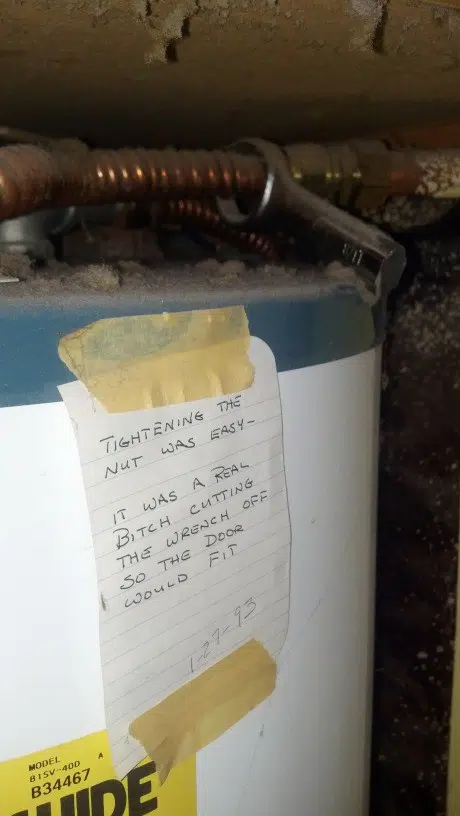 TIGHTENING THE
NUT WAS EASY-
IT WAS A REAL
BITCH CUTTING
THE WRENCH OFF
SO THE DOOR
WOULD FIT
1-27-93
MODEL A
81SV-40D
B34467